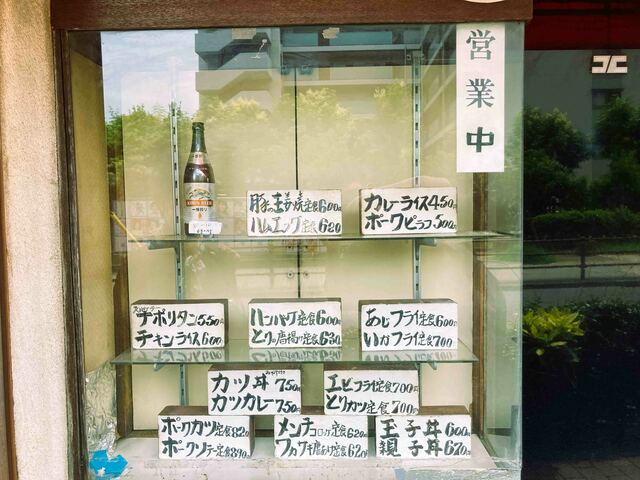 営業中
KIRIN BEER
豚の生姜焼定食600円
ハムエッグ定食620
カレーライス450円
ポークピラフ500円
ナポリタン550円
チキンライス600円
ハンバーグ定食600円
とりの唐揚げ定食630
あじフライ定食600円
いかフライ定食700
カツ丼750
カツカレー750
エビフライ定食700円
とりカツ定食700
ポークカツ定食820
ポークソテー定食890
メンチコロッケ定食620
玉子丼600
親子丼670